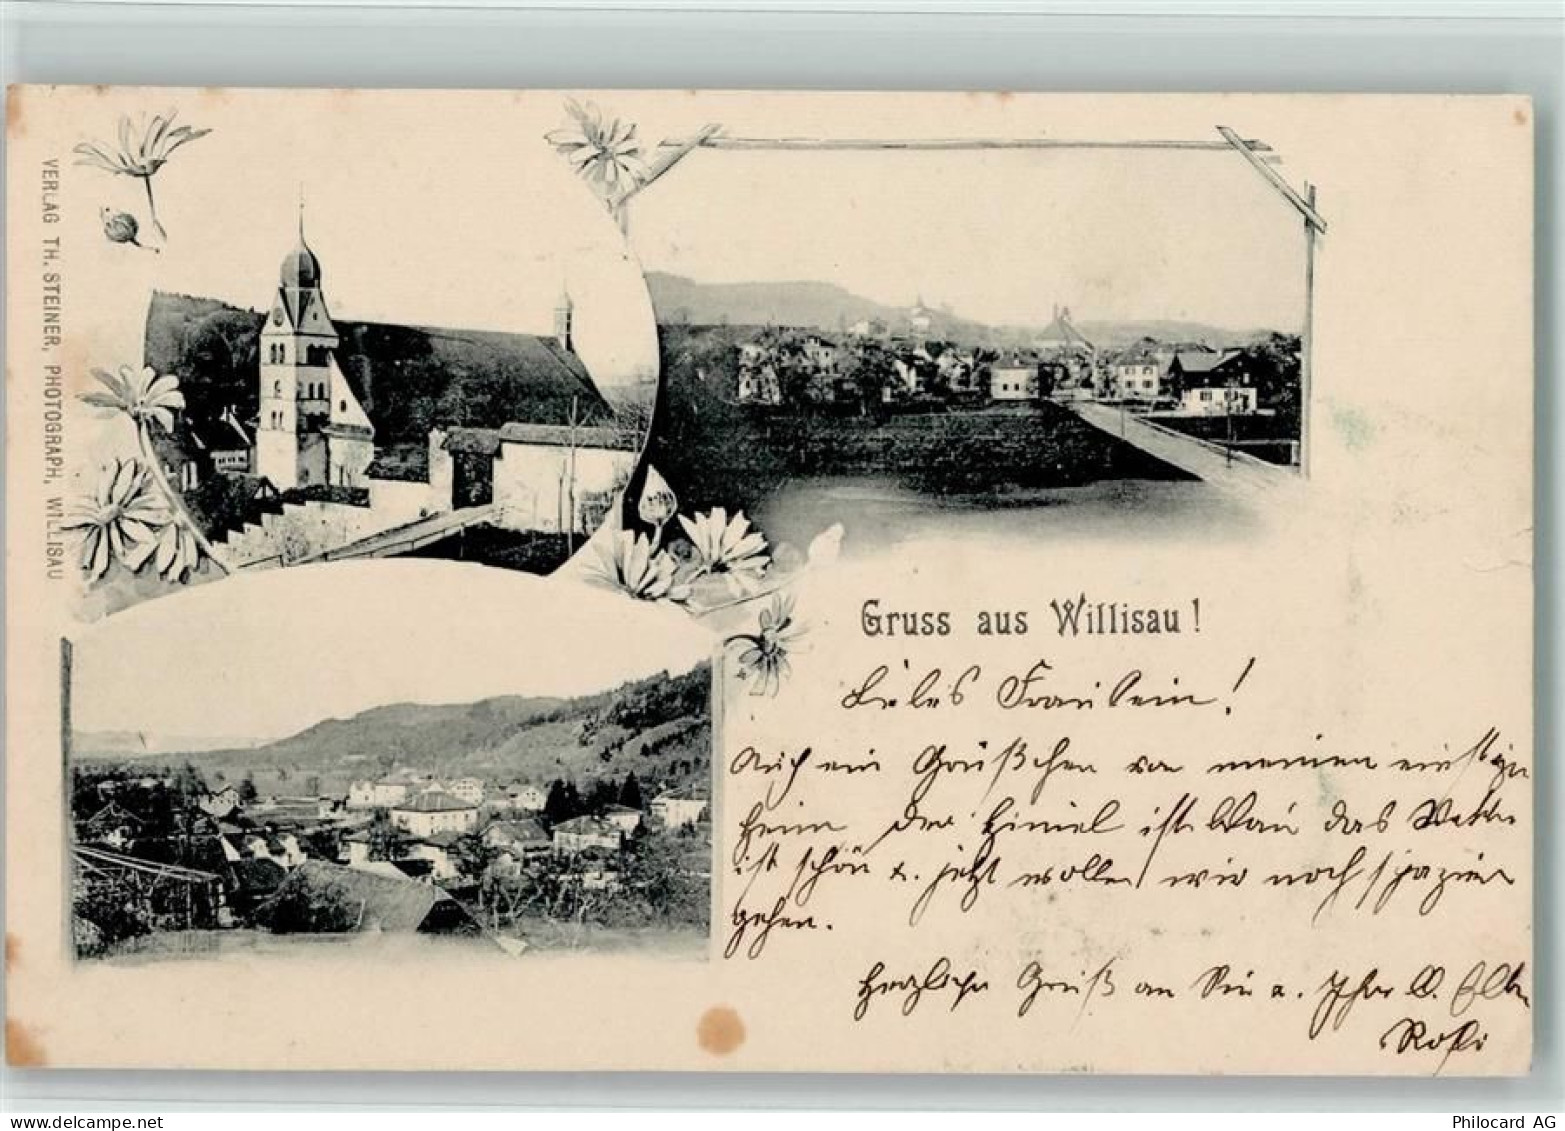 VERLAG TH. STEINER, PHOTOGRAPH, WILLISAU
Gruss aus Willisau!
Liebes Fräulein!
Auch ein Grüßchen von meinem einstigen
Heim. Der Himmel ist blau das Wetter
ist schön u. jetzt wollen wir noch spazieren
gehen.
Herzliche Grüß an Sie u. Ihre
Rosi
Philocard AG